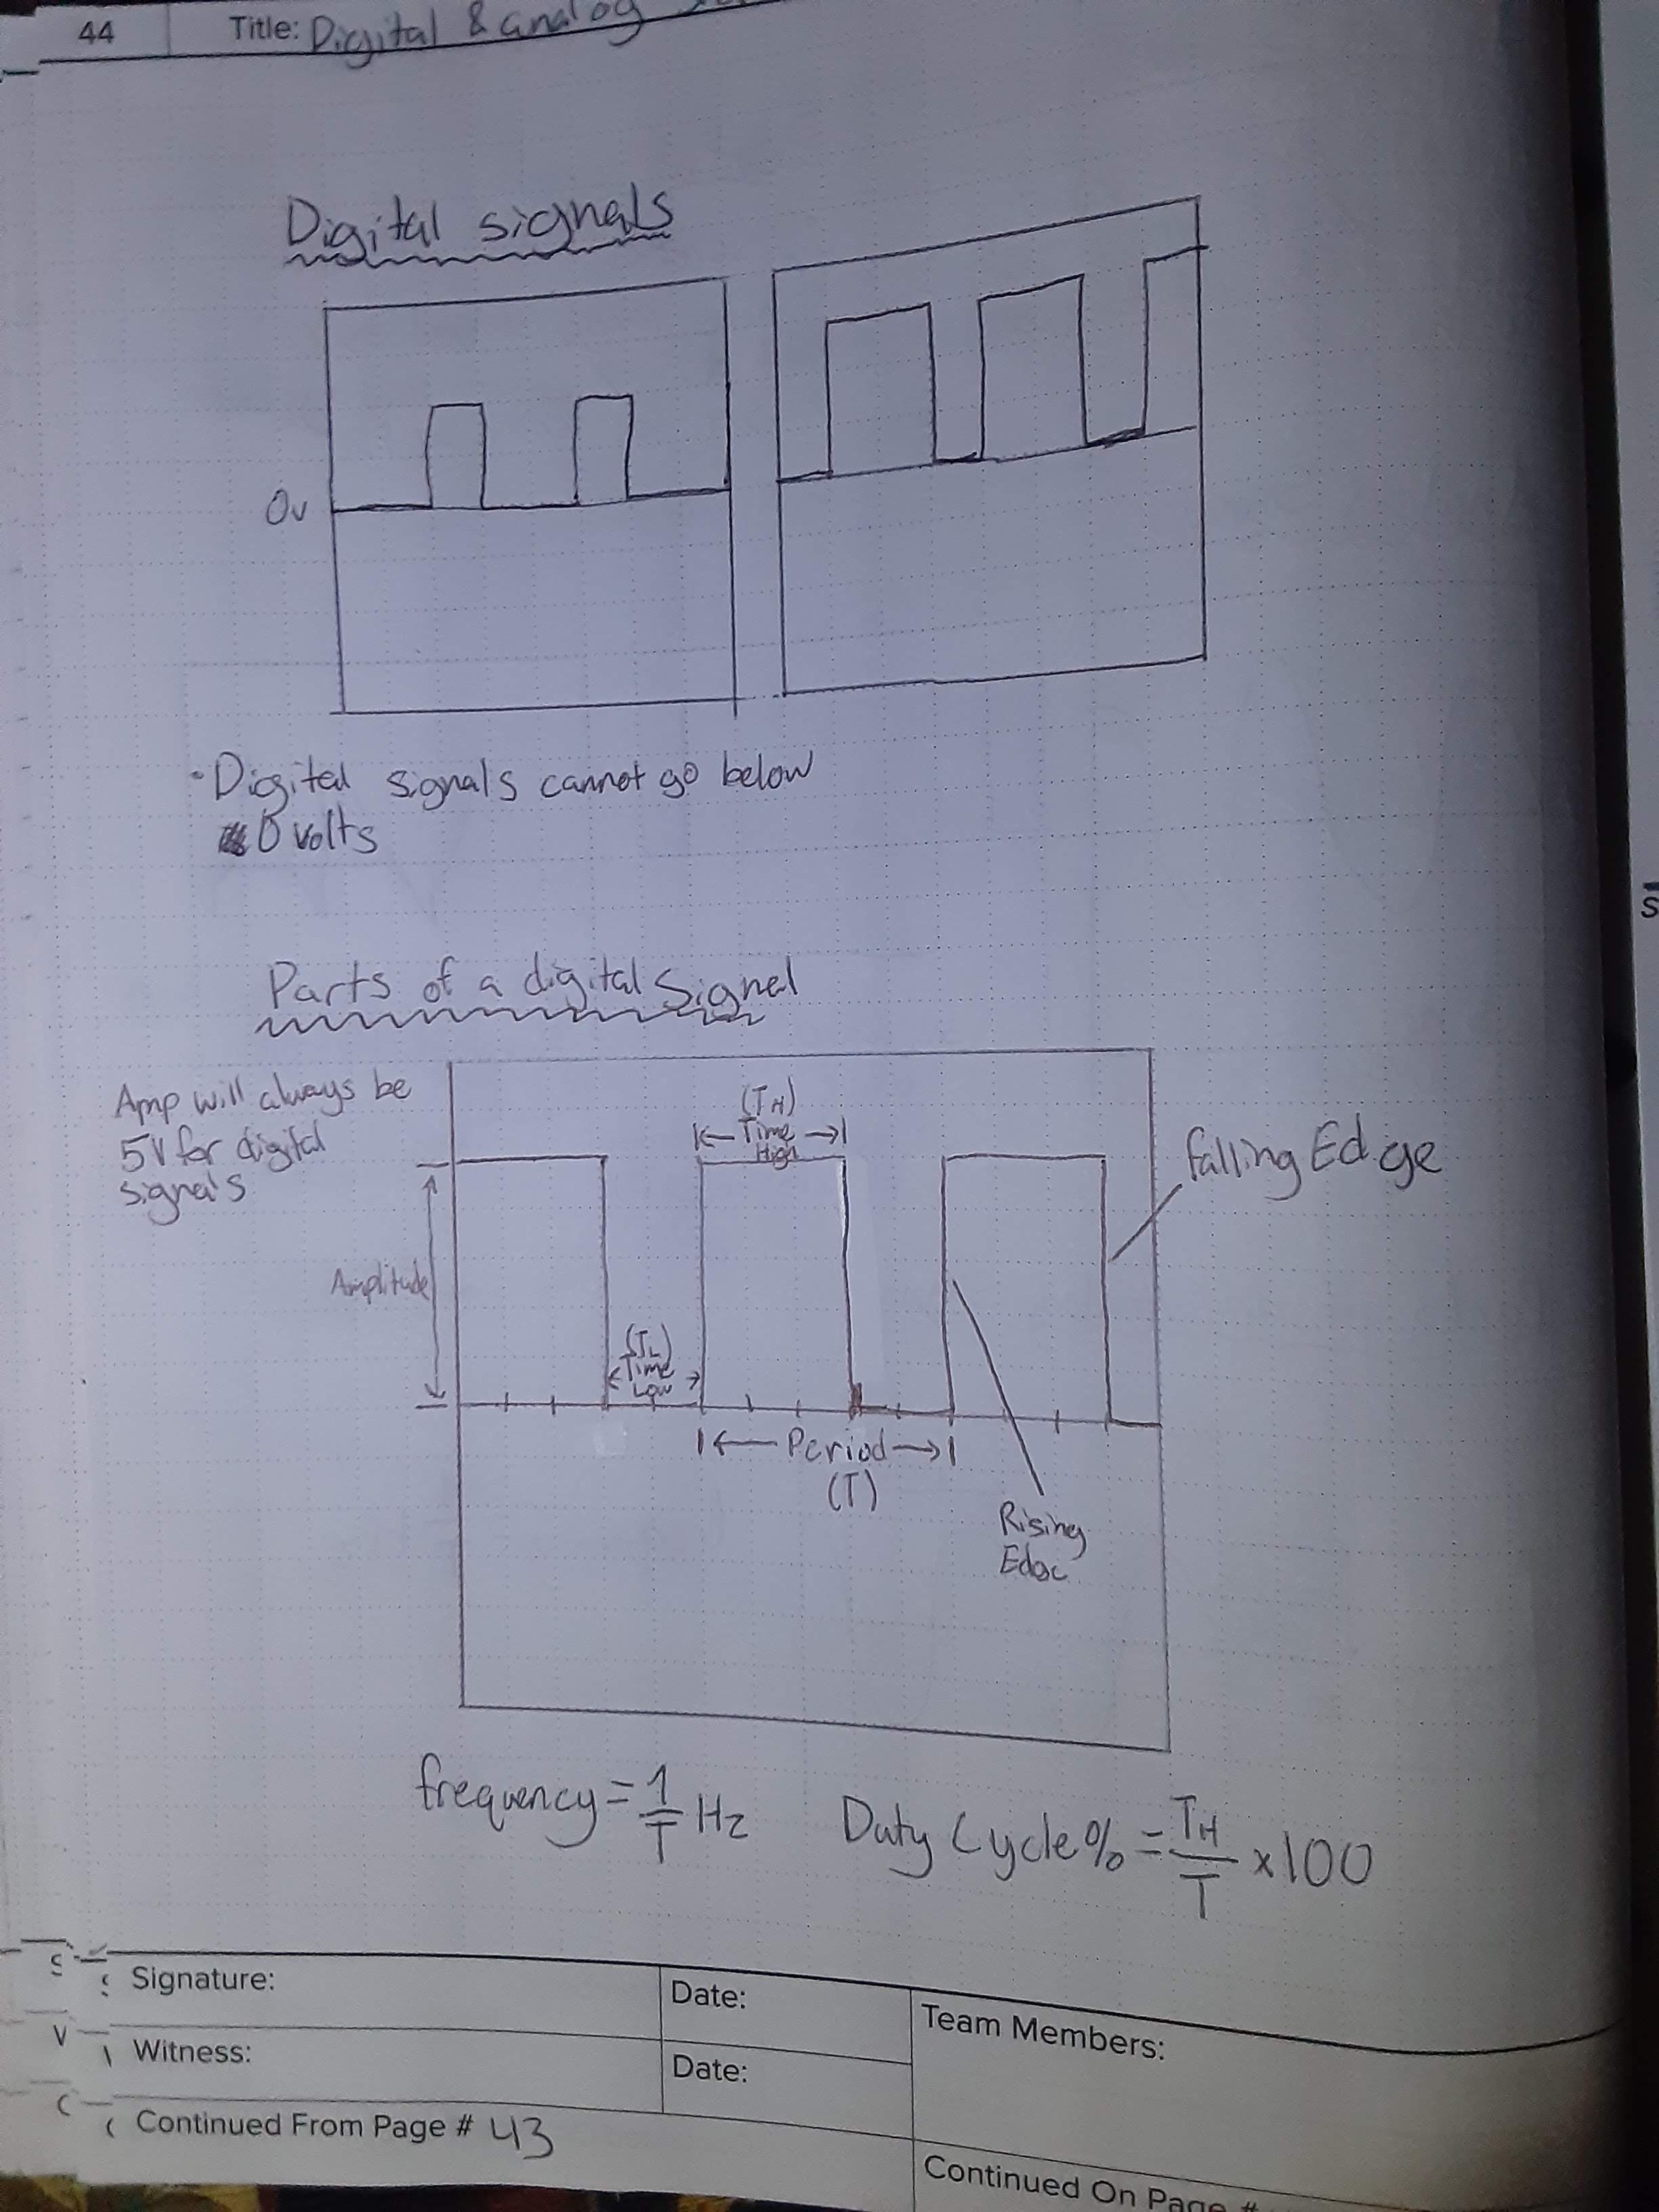 44
Title: Digital & analog
Digital signals
0v
• Digital signals cannot go below
0 volts
Parts of a digital Signal
Amp will always be
5V for digital
signals
(TH)
Time
High
falling Edge
Amplitude
(TL)
Time
Low
Period
(T)
Rising
Edge
frequency = 1/T Hz
Duty Cycle % = TH/T x100
Signature:
Date:
Team Members:
Witness:
Date:
Continued From Page # 43
Continued On Page #